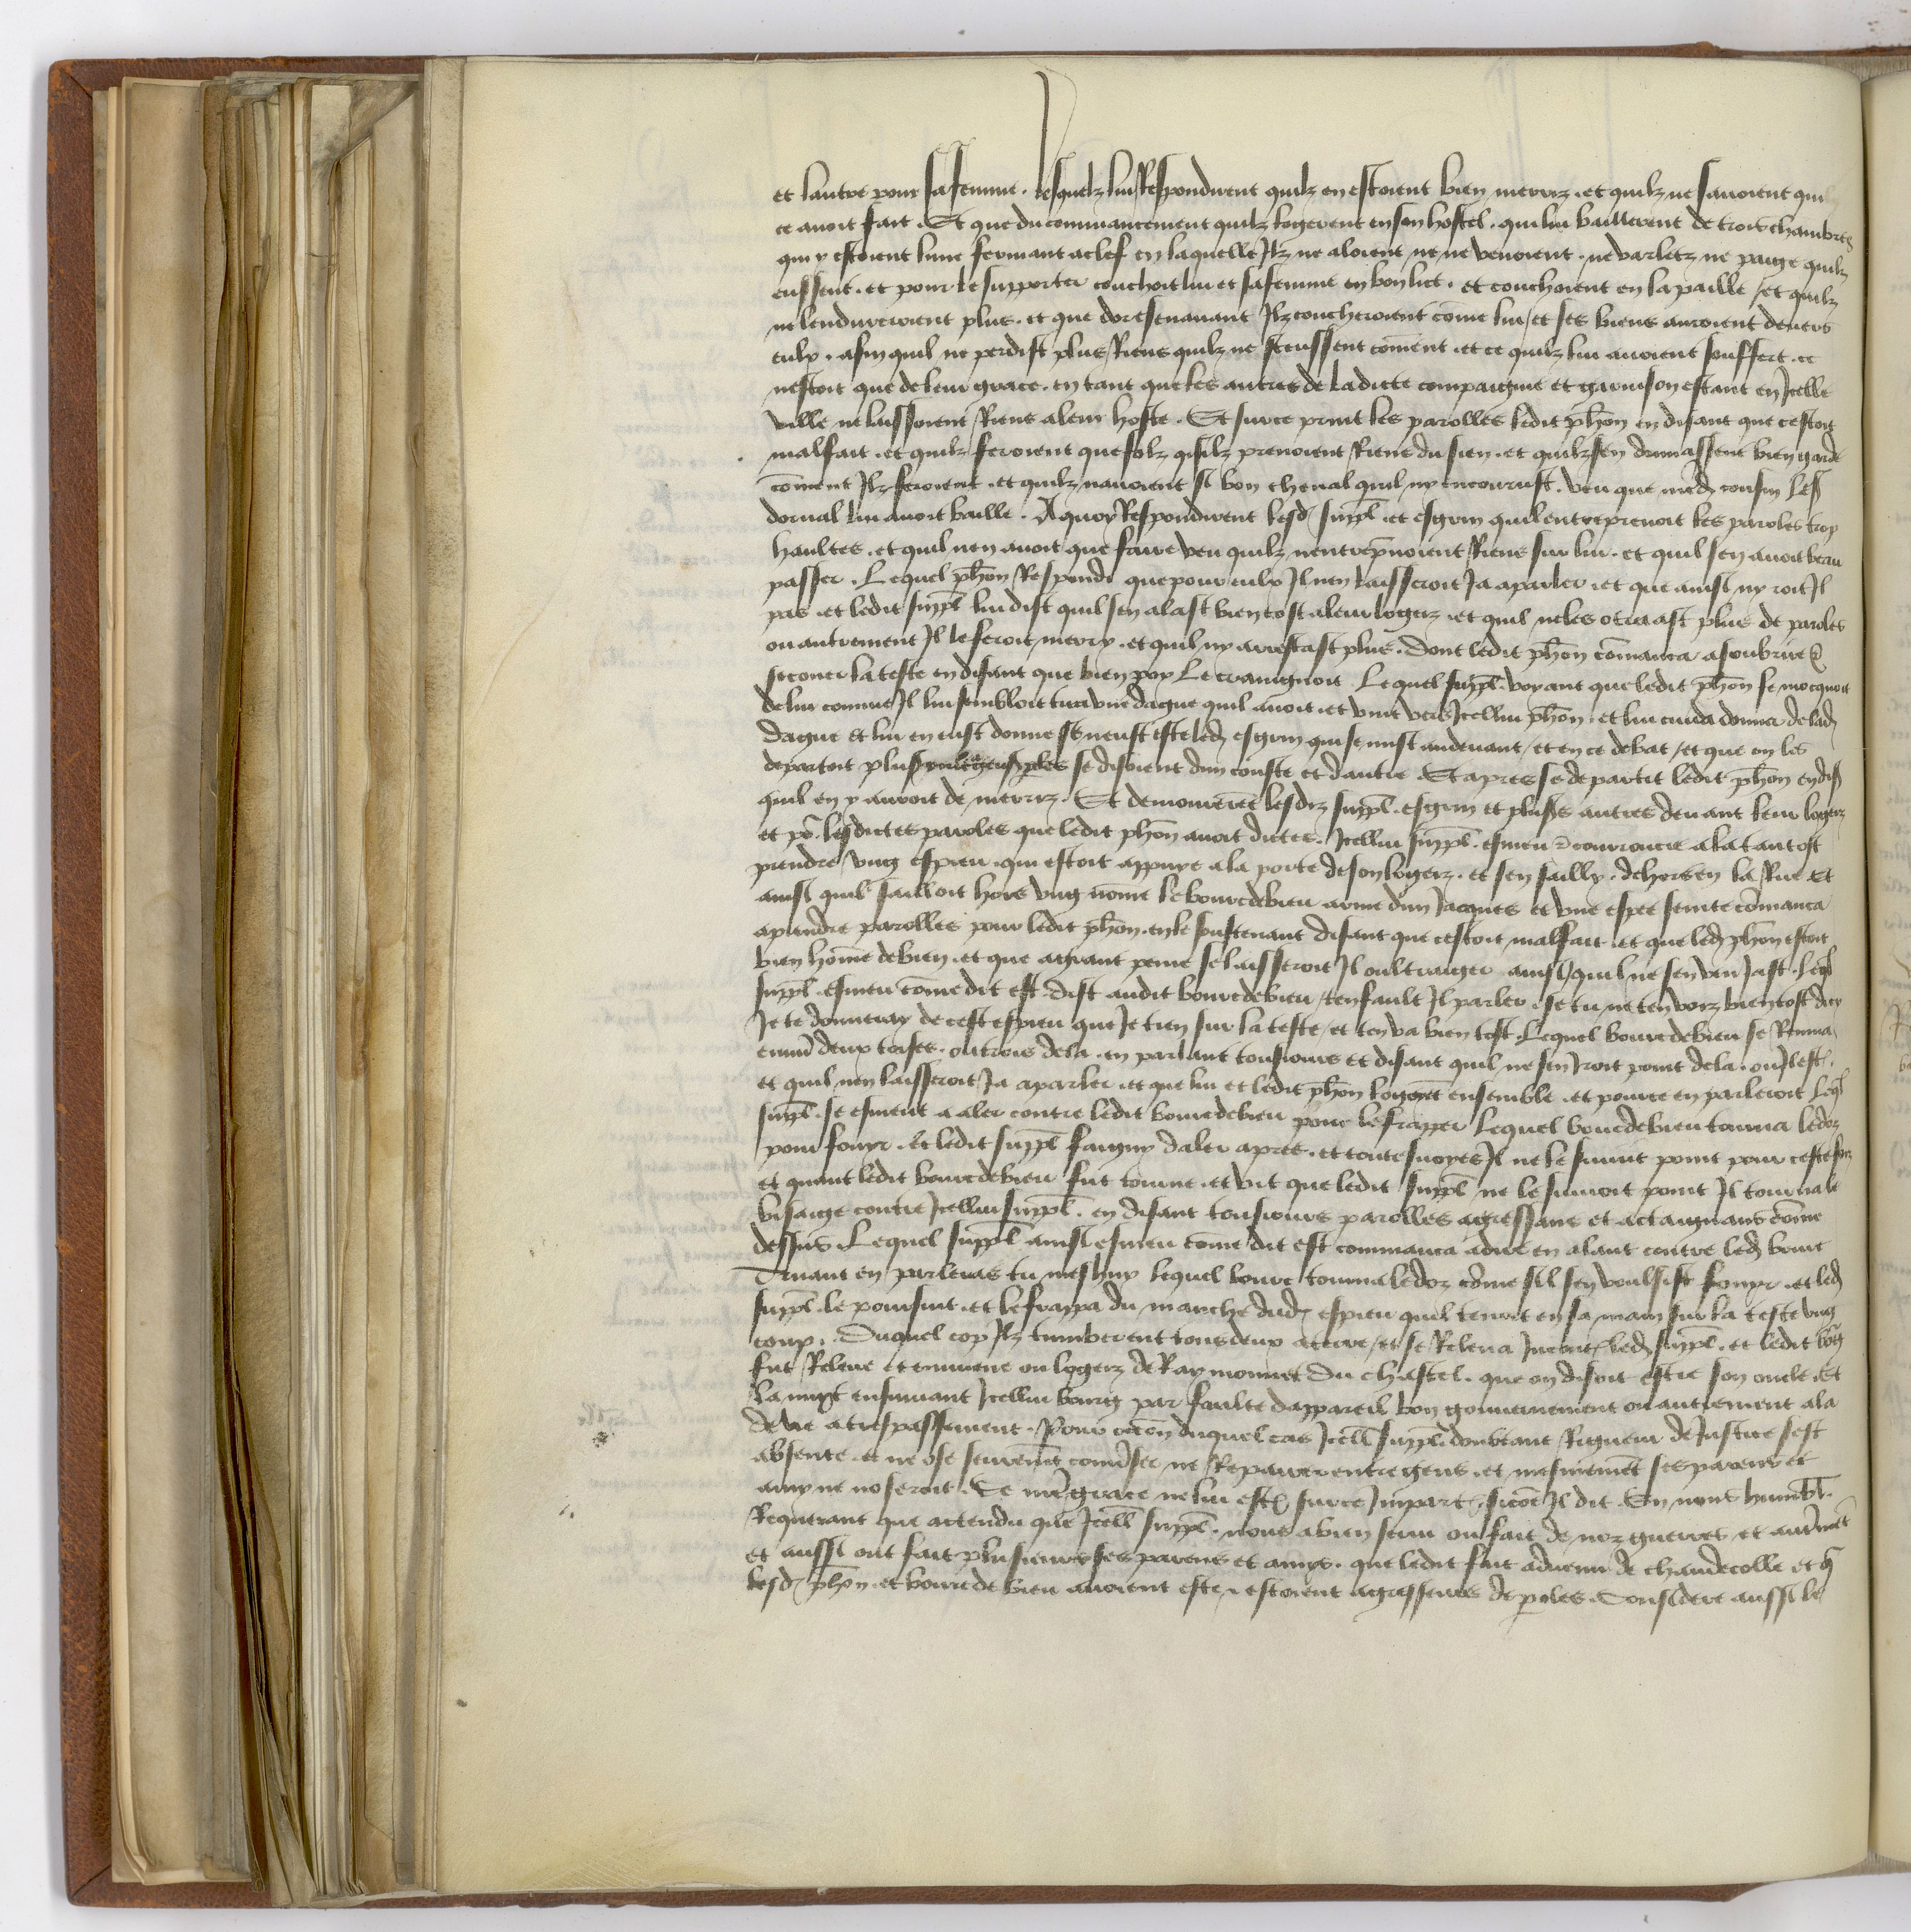 et lautre pour sa femme . lesquelz lui Respondirent quilz en estoient bien marriz . et quilz ne savoient qui
ce avoit fait . Et que du commancement quilz logerent en son hostel . qui lui baillerent de trois chambres
qui y estoient lune fermant a clef en laquelle Ilz ne aloient ne ne venoient . ne varletz ne paige quilz
eussent . et pour le supporter couchoit lui et sa femme en bon lict . et couchoient en la paille / et quilz
ne lendureroient plus . et que doresenavant Ilz coucheroient cōme lui / et ses biens auroient devers
eulx . afin quil ne perdist plus Riens quilz ne sceussent cōment . et ce quilz lui avoient souffert . ce
nestoit que de leur grace . en tant que les autres de ladicte compaignie et garnison estant en Icelle
ville ne laissoient Riens a leur hoste . Et sur ce print les parolles ledit phōn en disant que cestoit
malfait . et quilz feroient que folz silz prenoient Riens du sien . et quilz sen donnassent bien garde
cōment Ilz feroient . et quilz navoient si bon cheval quil ny encourust . veu que med cousin
dorval lui avoit baille . A quoy Respondirent lesd suppl . et esgrin quil entreprenoit les paroles trop
haultes . et quil nen avoit que faire veu quilz nentrepnoient Riens sur lui . et quil sen avoit beau
passer . Lequel phōn Respondi que pour eulx Il nen laisseroit Ja a parler . et que ainsi ny roit Il
pas . et ledit suppl lui dist quil sen alast bien tost a leur logeiz . et quil ne les plus de paroles
ou autrement Il le feroit marry . et quil ny arrestast plus . Dont ledit phōn cōmanca a soubzrire &
secouer la teste en disant que bien poy le craingnoit . Lequel suppl . voyant que ledit phōn se mocquoit
de lui comme Il lui sembloit tira une dague quil avoit . et vint vers Icellui phōn . et lui cuida donner de lad
dague et lui en eust donne se neust este led esgrin qui se mist au devant / et en ce debat / et que on les
departoit se disoient dun couste et dautre . Et apres se departit ledit phōn en dis
quil en y auroit de marriz . Et demourerēt lesdiz suppl . esgrin et plus autres devant leur logeiz
et po lesdictes paroles que ledit phōn avoit dictes . Icellui suppl . esmeu & courroucie ala tantost
prendre ung espieu . qui estoit appuye a la porte de son logeiz . et sen sailly . dehors en la Rue . Et
ainsi quil sailloit hors ung nōme le bourcdebieu arme dun Jacques et une espee ceinte cōmanca
a prendre parolles pour ledit phōn . en le soustenant disant que cestoit malfait . et que led phōn estoit
bien hōme de bien . et que a grant peine se laisseroit Il oultraiger ainsi quil ne sen venJast . leql
suppl . esmeu cōme dit est . dist audit bourcdebieu / ten fault Il parler . se tu ne ten vois bien tost dicy
Je te donneray de cest espieu que Je tien sur la teste / et ten va bien tost . Lequel bourcdebieu se Remua
deux toises . ou trois de la . en parlant tousiours et disant quil ne sen Iroit point de la . ou Il est .
et quil nen laisseroit Ja a parler . et que lui et ledit phōn logoiēt ensemble . et pource en parleroit leql
suppl . se esmeut a aler contre ledit bourcdebieu pour le frapper lequel bourcdebieu tourna le doz
pour fouyr . et ledit suppl faigny daler apres . et toutesvoyes Il ne le suivit point pour ceste foiz
et quant ledit bourcdebieu fut tourne . et vit que ledit suppl ne le suivoit point Il tourna le
visaige contre Icellui suppl . en disant tousiours parolles agressans et actaignans cōme
dessus . Lequel suppl ainsi esmeu cōme dit est commanca a dire en alant contre led bourc
Truant en parleras tu meshuy lequel bourc tourna le doz cōme sil sen voulsist fouyr . et led
suppl . le poursuit . et le frappa du manche dud espieu quil tenoit en sa main sur la teste ung
coup . Duquel cop Ilz tumberent tous deux a terre / et se Releva Incont led suppl . et ledit bourg
fut Releve et emmene ou logeiz de Raymonnet du chastel . que on disoit estre son oncle . et
la nuyt ensuivant Icellui bourg par faulte dappareil bon gouvernement ou autrement ala
de vie a trespassement . Pour occōn duquel cas Icell suppl . doubtant Rigueur de Justice sest
absente . et ne ose converser ne Repairer entre gens . et mesmemēt ses parens et
amy ne noseroit . Se nre grace ne lui est sur ce Impart . sicōe Il dit . En nous humbl .
Requerant que actendu que Icell suppl . nous a bien servi ou fait de noz guerres et autremēt
et aussi ont fait plusieurs ses parens et amys . que ledit fait advenu de chaudecolle et q
lesd phōn . et bourcdebieu avoient este & estoient agresseurs de paroles . Considere aussi le